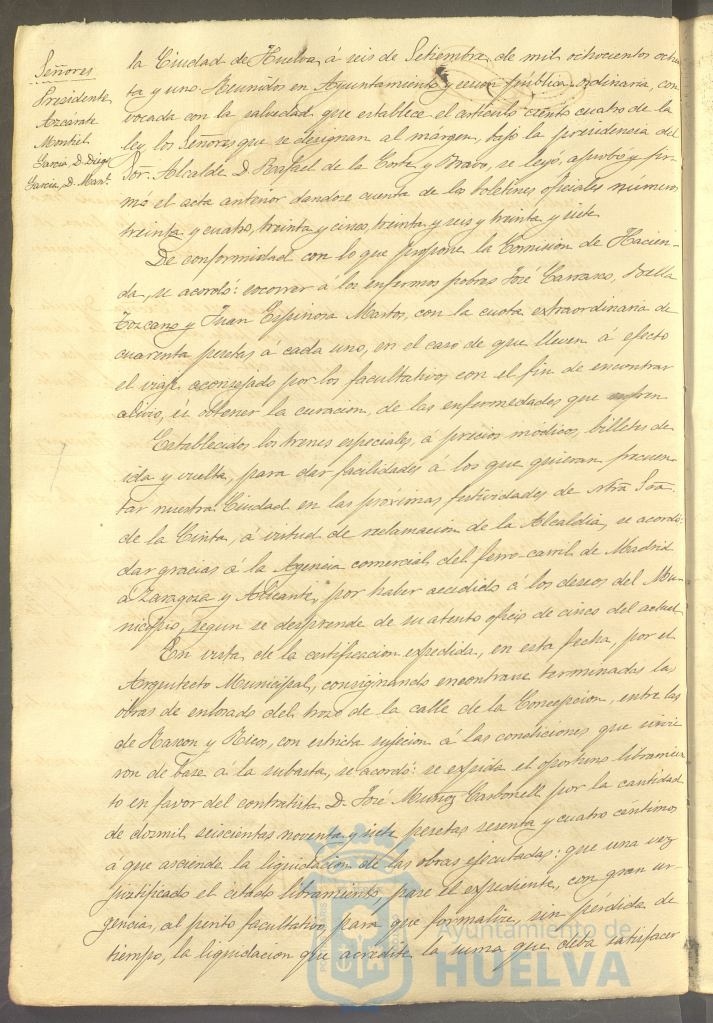 Señores
Presidente
Azcárate
Montiel
García, D. Diego
García, D. Manl.
la Ciudad de Huelva, á seis de Setiembre de mil ochocientos ochen
ta y uno: Reunidos en Ayuntamiento y sesion pública ordinaria, con
vocada con la salvedad que establece el artículo ciento cuatro de la
ley, los Señores que se designan al márgen, bajo la presidencia del
Sor. Alcalde D. Rafael de la Corte y Bravo, se leyó, aprobó y fir-
mó el acta anterior dandose cuenta de los boletines oficiales números
treinta y cuatro, treinta y cinco, treinta y seis y treinta y siete.
De conformidad con lo que propone la Comision de Hacien-
da, se acordó: socorrer á los enfermos pobres José Carrasco, Bella
Tozcano y Juan Espinosa Martos, con la cuota extraordinaria de
cuarenta pesetas á cada uno, en el caso de que lleven á efecto
el viaje aconsejado por los facultativos con el fin de encontrar
alivio, ú obtener la curacion, de las enfermedades que sufren
Establecidos los trenes especiales, á precios módicos, billetes de
ida y vuelta, para dar facilidades á los que quieran frecuen-
tar nuestra Ciudad en las proximas festividades de Ntra Sra
de la Cinta, á virtud de reclamacion de la Alcaldia, se acordó:
dar gracias á la Agencia comercial del ferro-carril de Madrid
á Zaragoza y Alicante, por haber accedido á los deseos del Mu-
nicipio, segun se desprende de su atento oficio de cinco del actual
En vista de la certificacion expedida, en esta fecha, por el
Arquitecto Municipal, consignando encontrarse terminadas las
obras de enlosado del trozo de la calle de la Concepcion, entre las
de Rascon y Rico, con estricta sujecion á las condiciones que sirvie
ron de base á la subasta, se acordó: se expida el oportuno libramien
to en favor del contratista D. José Muñoz Carbonell por la cantidad
de dosmil seiscientas noventa y siete pesetas sesenta y cuatro céntimos
á que asciende la liquidacion de las obras ejecutadas: que una vez
justificado el citado libramiento, pase el expediente, con gran ur-
gencia, al perito facultativo para que formalize, sin pérdida de
tiempo, la liquidacion que acredite la suma que deba satisfacer
Ayuntamiento de
HUELVA